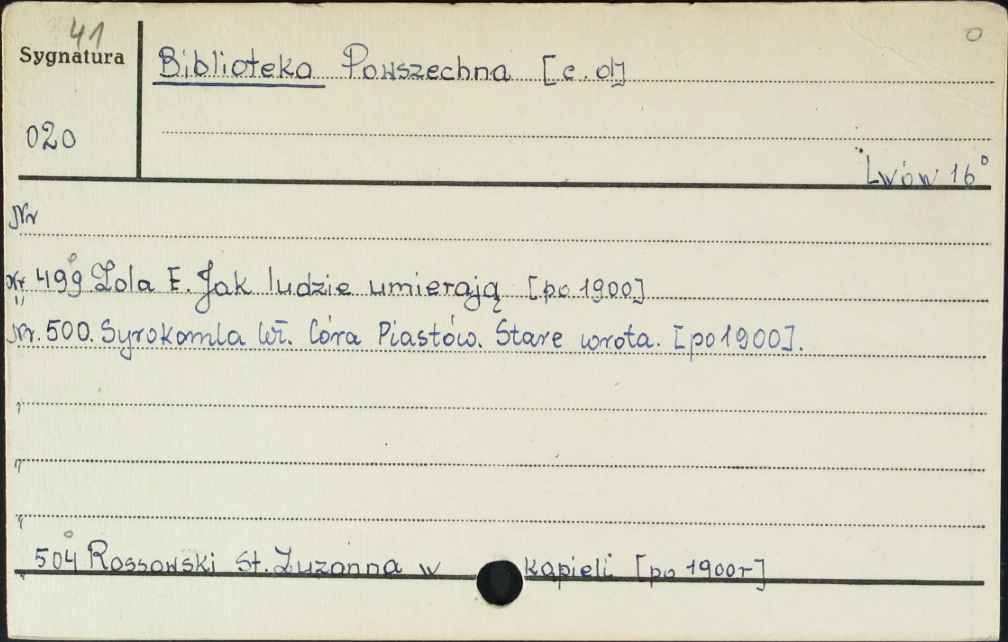 41
Sygnatura
Biblioteka Powszechna [c.d]
020
Lwów 16°
Nr
Nr 499 Zola E. Jak ludzie umierają [po 1900]
Nr. 500. Syrokomla Wł. Córa Piastów. Stare wrota. [po 1900].
504 Rossowski St. Zuzanna w kąpieli [po 1900r]